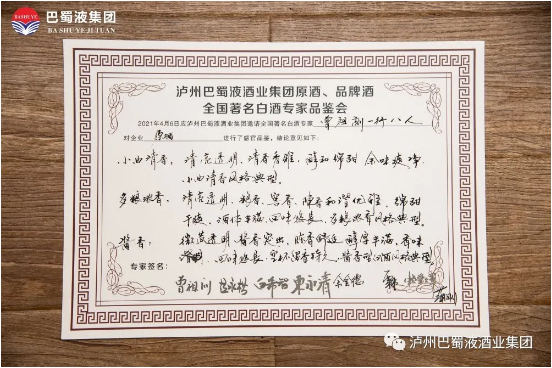 BASHUYE
巴蜀液集团
BA SHU YE JI TUAN
泸州巴蜀液酒业集团原酒、品牌酒
全国著名白酒专家品鉴会
2021年4月6日应泸州巴蜀液酒业集团邀请全国著名白酒专家 曾祖训一行八人
对企业 原酒 进行了感官品鉴,结论意见如下:
小曲清香: 清亮透明、清香香雅、醇和绵甜 余味爽净、
小曲清香风格典型。
多粮浓香: 清亮透明、粮香、窖香、陈香和谐优雅、绵甜
干爽、酒体丰满、回味悠长、多粮浓香风格典型。
酱香: 微黄透明、酱香突出、陈香舒适 醇厚丰满、香味
回味悠长、空杯留香持久、酱香型风格典型
专家签名:
曾祖训 白希智 余全德
泸州巴蜀液酒业集团